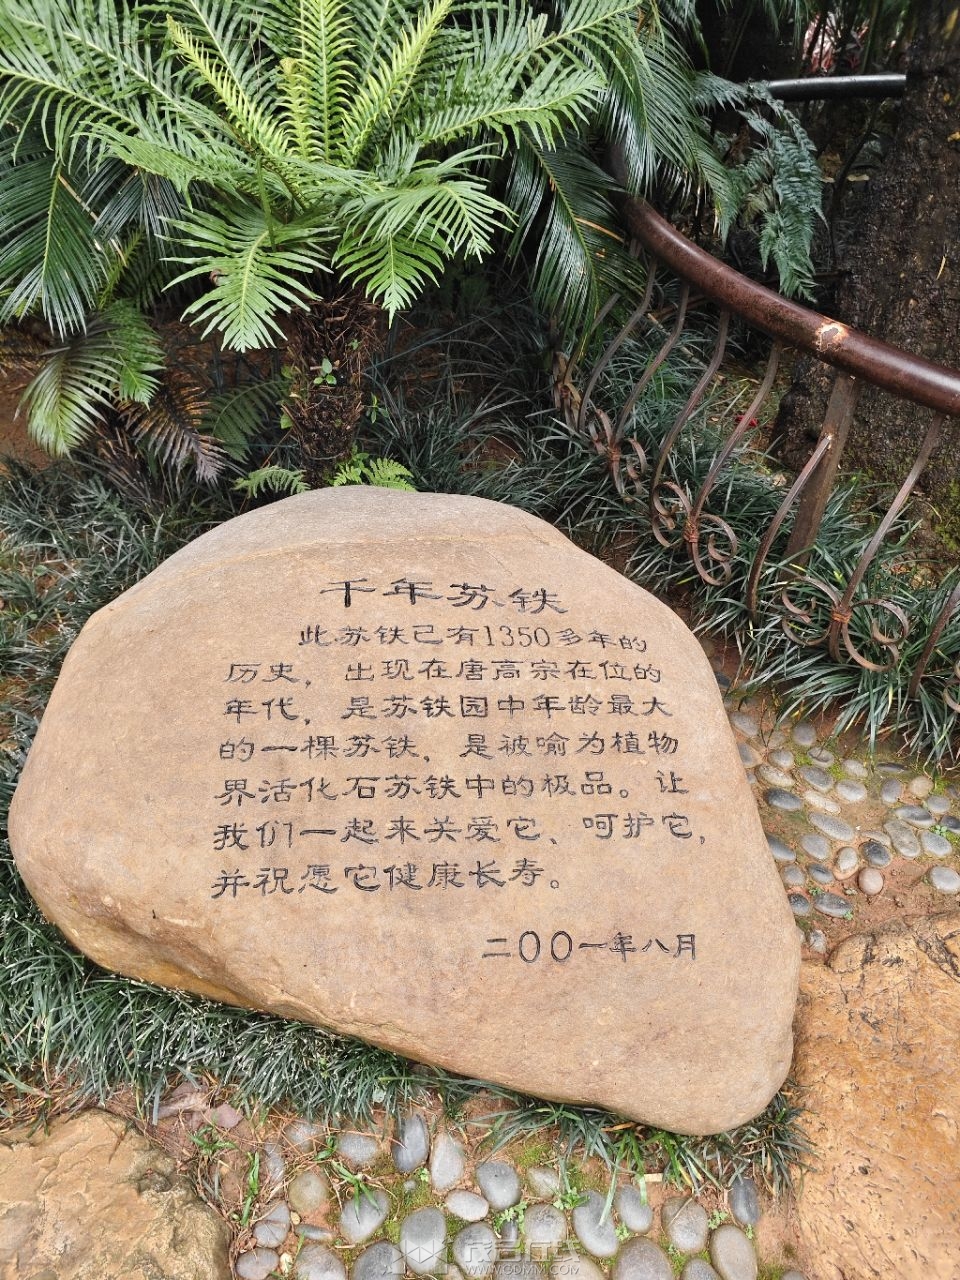 千年苏铁
此苏铁已有1350多年的
历史，出现在唐高宗在位的
年代，是苏铁园中年龄最大
的一棵苏铁，是被喻为植物
界活化石苏铁中的极品。让
我们一起来关爱它、呵护它，
并祝愿它健康长寿。
二〇〇一年八月
茂名在线
WWW.GDMM.COM